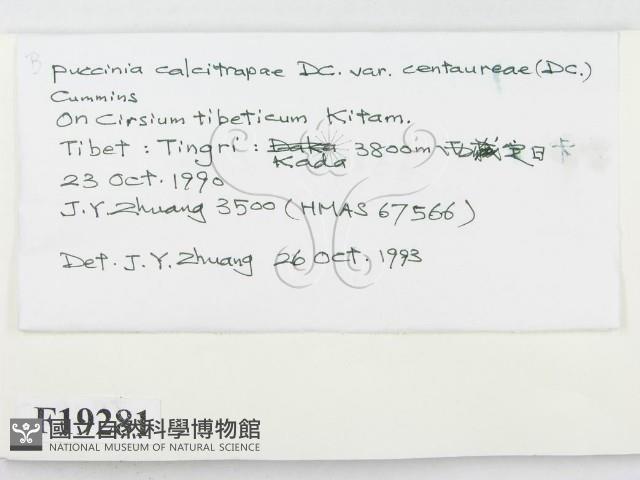 B
Puccinia calcitrapae DC. var. centaureae (DC.)
Cummins
On Cirsium tibeticum Kitam.
Tibet : Tingri : Kada 3800m 西藏定日卡
23 Oct. 1990
J.Y. Zhuang 3500 (HMAS 67566)
Det. J.Y. Zhuang 26 Oct. 1993
F19281
國立自然科學博物館
NATIONAL MUSEUM OF NATURAL SCIENCE